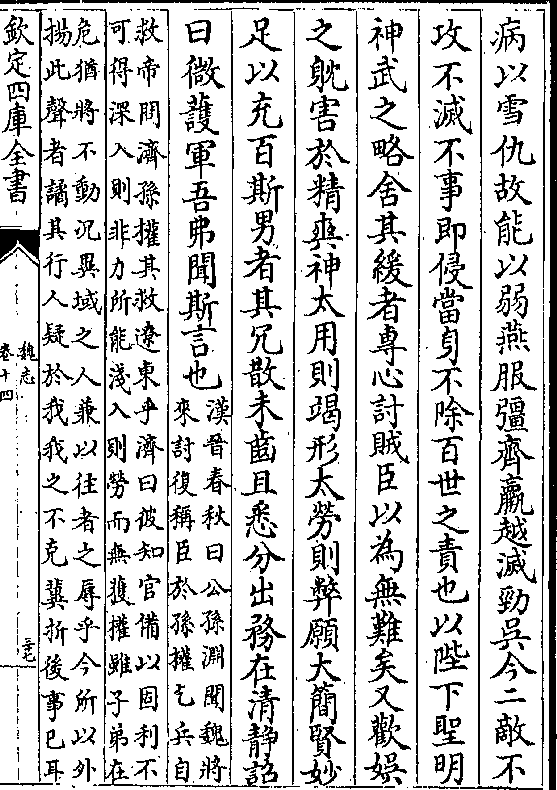 病以雪仇故能以弱燕服彊齊羸越滅勁吳今二敵不
攻不滅不事即侵當身不除百世之責也以陛下聖明
神武之略舍其緩者專心討賊臣以為無難矣又歡娛
之躭害於精爽神太用則竭形太勞則弊願大簡賢妙
足以充百斯男者其冗散未齒且悉分出務在清静詔
曰微護軍吾弗聞斯言也
漢晉春秋曰公孫淵聞魏將
來討復稱臣於孫權乞兵自
救帝問濟孫權其救遼東乎濟曰彼知官備以固利不
可得深入則非力所能淺入則勞而無獲權雖子弟在
危猶將不動況異域之人兼以往者之辱乎今所以外
揚此聲者譎其行人疑於我我之不克冀折後事已耳
欽定四庫全書
魏志
卷十四
三七